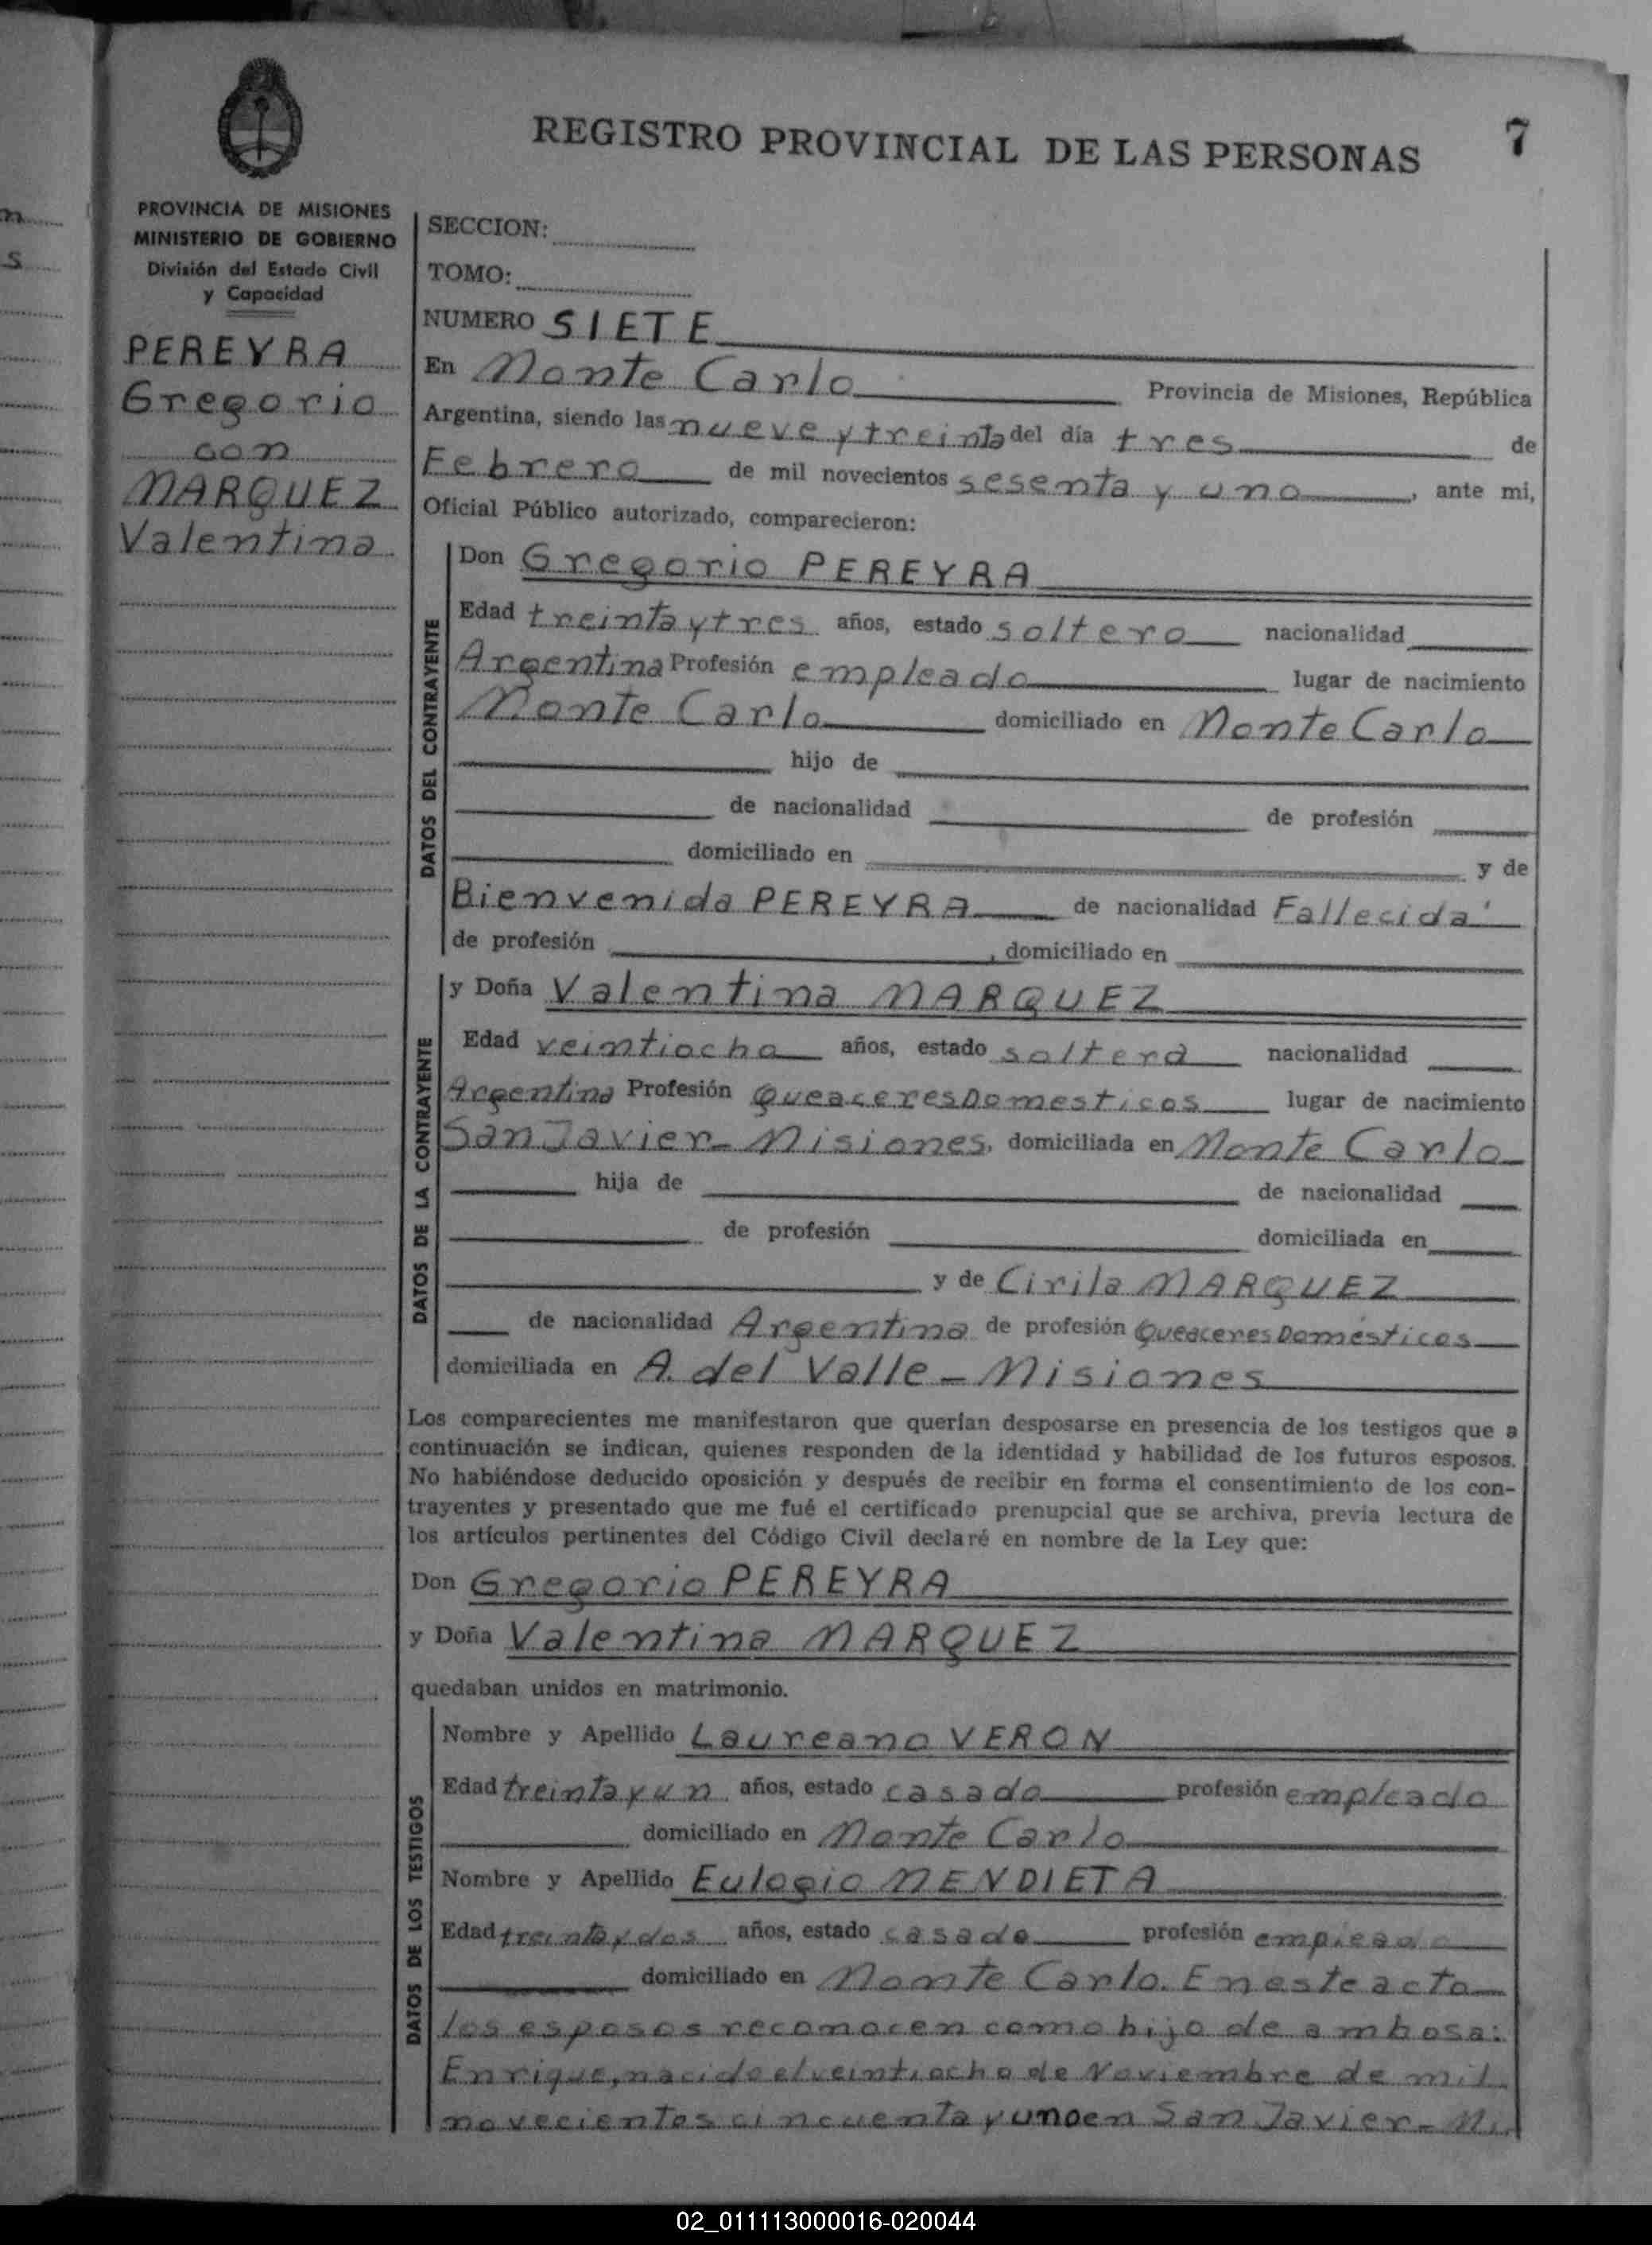 REGISTRO PROVINCIAL DE LAS PERSONAS
7
PROVINCIA DE MISIONES
MINISTERIO DE GOBIERNO
División del Estado Civil
y Capacidad
PEREYRA
Gregorio
con
MARQUEZ
Valentina
SECCION:
TOMO:
NUMERO SIETE
En Monte Carlo Provincia de Misiones, República
Argentina, siendo las nueve y treinta del día tres de
Febrero de mil novecientos sesenta y uno, ante mi,
Oficial Público autorizado, comparecieron:
DATOS DEL CONTRAYENTE
Don Gregorio PEREYRA
Edad treinta y tres años, estado soltero nacionalidad
Argentina Profesión empleado lugar de nacimiento
Monte Carlo domiciliado en Monte Carlo
hijo de
de nacionalidad de profesión
domiciliado en y de
Bienvenida PEREYRA de nacionalidad Fallecida
de profesión , domiciliado en
DATOS DE LA CONTRAYENTE
y Doña Valentina MARQUEZ
Edad veintiocho años, estado soltera nacionalidad
Argentina Profesión Queaceres Domesticos lugar de nacimiento
San Javier - Misiones, domiciliada en Monte Carlo
hija de de nacionalidad
de profesión domiciliada en
y de Cirila MARQUEZ
de nacionalidad Argentina de profesión Queaceres Domésticos
domiciliada en A. del Valle - Misiones
Los comparecientes me manifestaron que querían desposarse en presencia de los testigos que a
continuación se indican, quienes responden de la identidad y habilidad de los futuros esposos.
No habiéndose deducido oposición y después de recibir en forma el consentimiento de los con-
trayentes y presentado que me fué el certificado prenupcial que se archiva, previa lectura de
los artículos pertinentes del Código Civil declaré en nombre de la Ley que:
Don Gregorio PEREYRA
y Doña Valentina MARQUEZ
quedaban unidos en matrimonio.
DATOS DE LOS TESTIGOS
Nombre y Apellido Laureano VERON
Edad treinta y un años, estado casado profesión empleado
domiciliado en Monte Carlo
Nombre y Apellido Eulogio MENDIETA
Edad treinta y dos años, estado casado profesión empleado
domiciliado en Monte Carlo. En este acto
los esposos reconocen como hijo de ambos a:
Enrique, nacido el veintiocho de Noviembre de mil
novecientos cincuenta y uno en San Javier - Mi
n
s
02_011113000016-020044